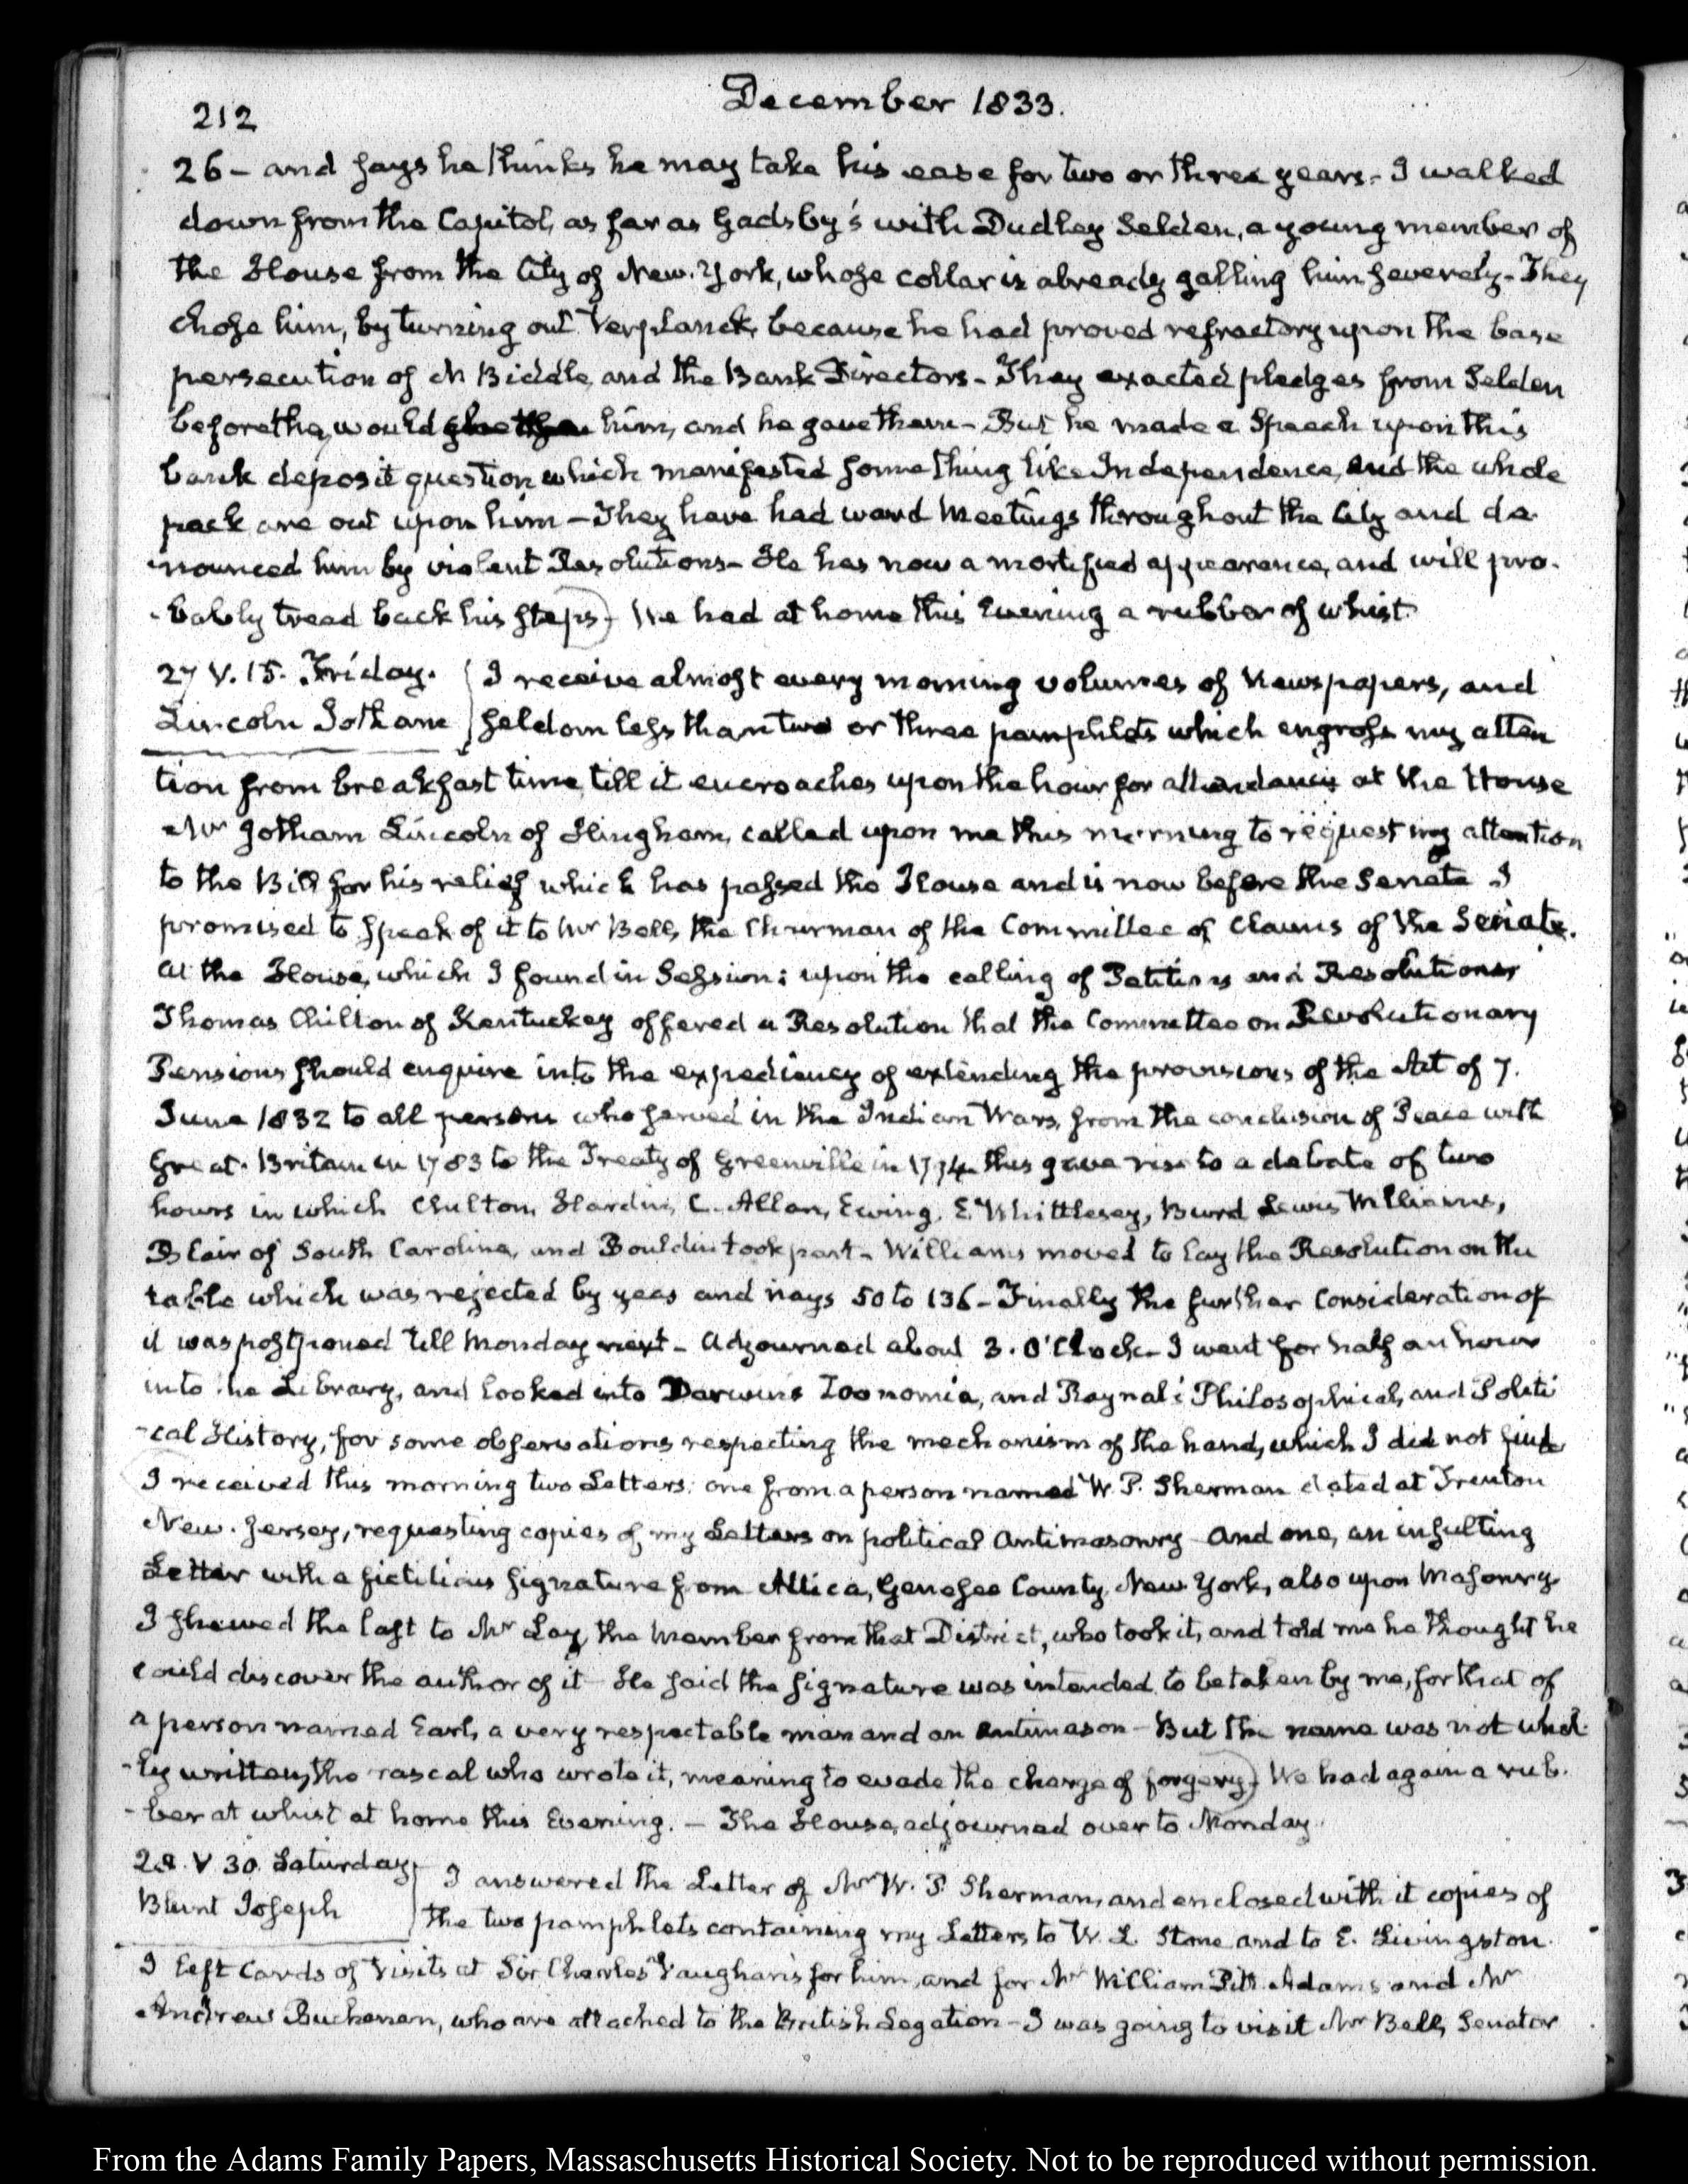 212
December 1833.
26 - and says he thinks he may take his ease for two or three years. I walked
down from the Capitol, as far as Gadsby's with Dudley Selden, a young member of
the House from the City of New-York, whose collar is already galling him severely - They
chose him, by turning out Verplanck, because he had proved refractory upon the base
persecution of N Biddle, and the Bank Directors - They exacted pledges from Selden
before they would him, and he gave them - But he made a Speech upon this
bank deposit question which manifested something like Independence, and the whole
pack are out upon him - They have had ward Meetings throughout the City and de-
-nounced him by violent Resolutions - He has now a mortified appearance, and will pro-
-bably tread back his steps) We had at home this Evening a rubber of whist.
27 V. 15. Friday.
Lincoln Jotham
I receive almost every morning volumes of Newspapers, and
seldom less than two or three pamphlets which engross my atten
tion from breakfast time, till it encroaches upon the hour for attendance at the House
Mr Jotham Lincoln of Hingham, called upon me this morning to request my attention
to the Bill for his relief which has passed the House and is now before the Senate I
promised to speak of it to Mr Bell, the Chairman of the Committee of Claims of the Senate.
At the House, which I found in Session; upon the calling of Petitions and Resolutions
Thomas Chilton of Kentuckey offered a Resolution that the Committee on Revolutionary
Pensions should enquire into the expediency of extending the provisions of the Act of 7.
June 1832 to all persons who served in the Indian Wars, from the conclusion of Peace with
Great-Britain in 1783 to the Treaty of Greenville in 1794 this gave rise to a debate of two
hours in which Chilton, Hardin, C. Allan, Ewing, E. Whittlesey, Burd Lewis Williams,
Blair of South Carolina, and Bouldin took part - Williams moved to lay the Resolution on the
table which was rejected by yeas and nays 50 to 136 - Finally the further Consideration of
it was postponed till Monday next - Adjourned about 3. O'Clock - I went for half an hour
into the Library, and looked into Darwin's Zoonomia, and Raynal's Philosophical, and Politi
-cal History, for some observations respecting the mechanism of the hand, which I did not find
I received this morning two Letters; one from a person named W. P. Sherman dated at Trenton
New-Jersey, requesting copies of my Letters on political Antimasonry - And one, an insulting
Letter with a fictitious signature from Attica, Genesee County, New-York, also upon Masonry
I shewed the last to Mr Lay, the Member from that District, who took it, and told me he thought he
could discover the author of it - He said the signature was intended to be taken by me, for that of
a person named Earl, a very respectable man and an antimason - But the name was not whol-
-ly written, the rascal who wrote it, meaning to evade the charge of forgery) We had again a rub-
-ber at whist at home this Evening. - The House, adjourned over to Monday.
28. V 30. Saturday
Blunt Joseph
I answered the Letter of Mr W. P. Sherman, and enclosed with it copies of
the two pamphlets containing my Letters to W. L. Stone and to E. Livingston.
I left Cards of Visits at Sir Charles Vaughan's for him, and for Mr William Pitt Adams and Mr
Andrew Buchanan, who are attached to the British Legation - I was going to visit Mr Bell, Senator
From the Adams Family Papers, Massachusetts Historical Society. Not to be reproduced without permission.